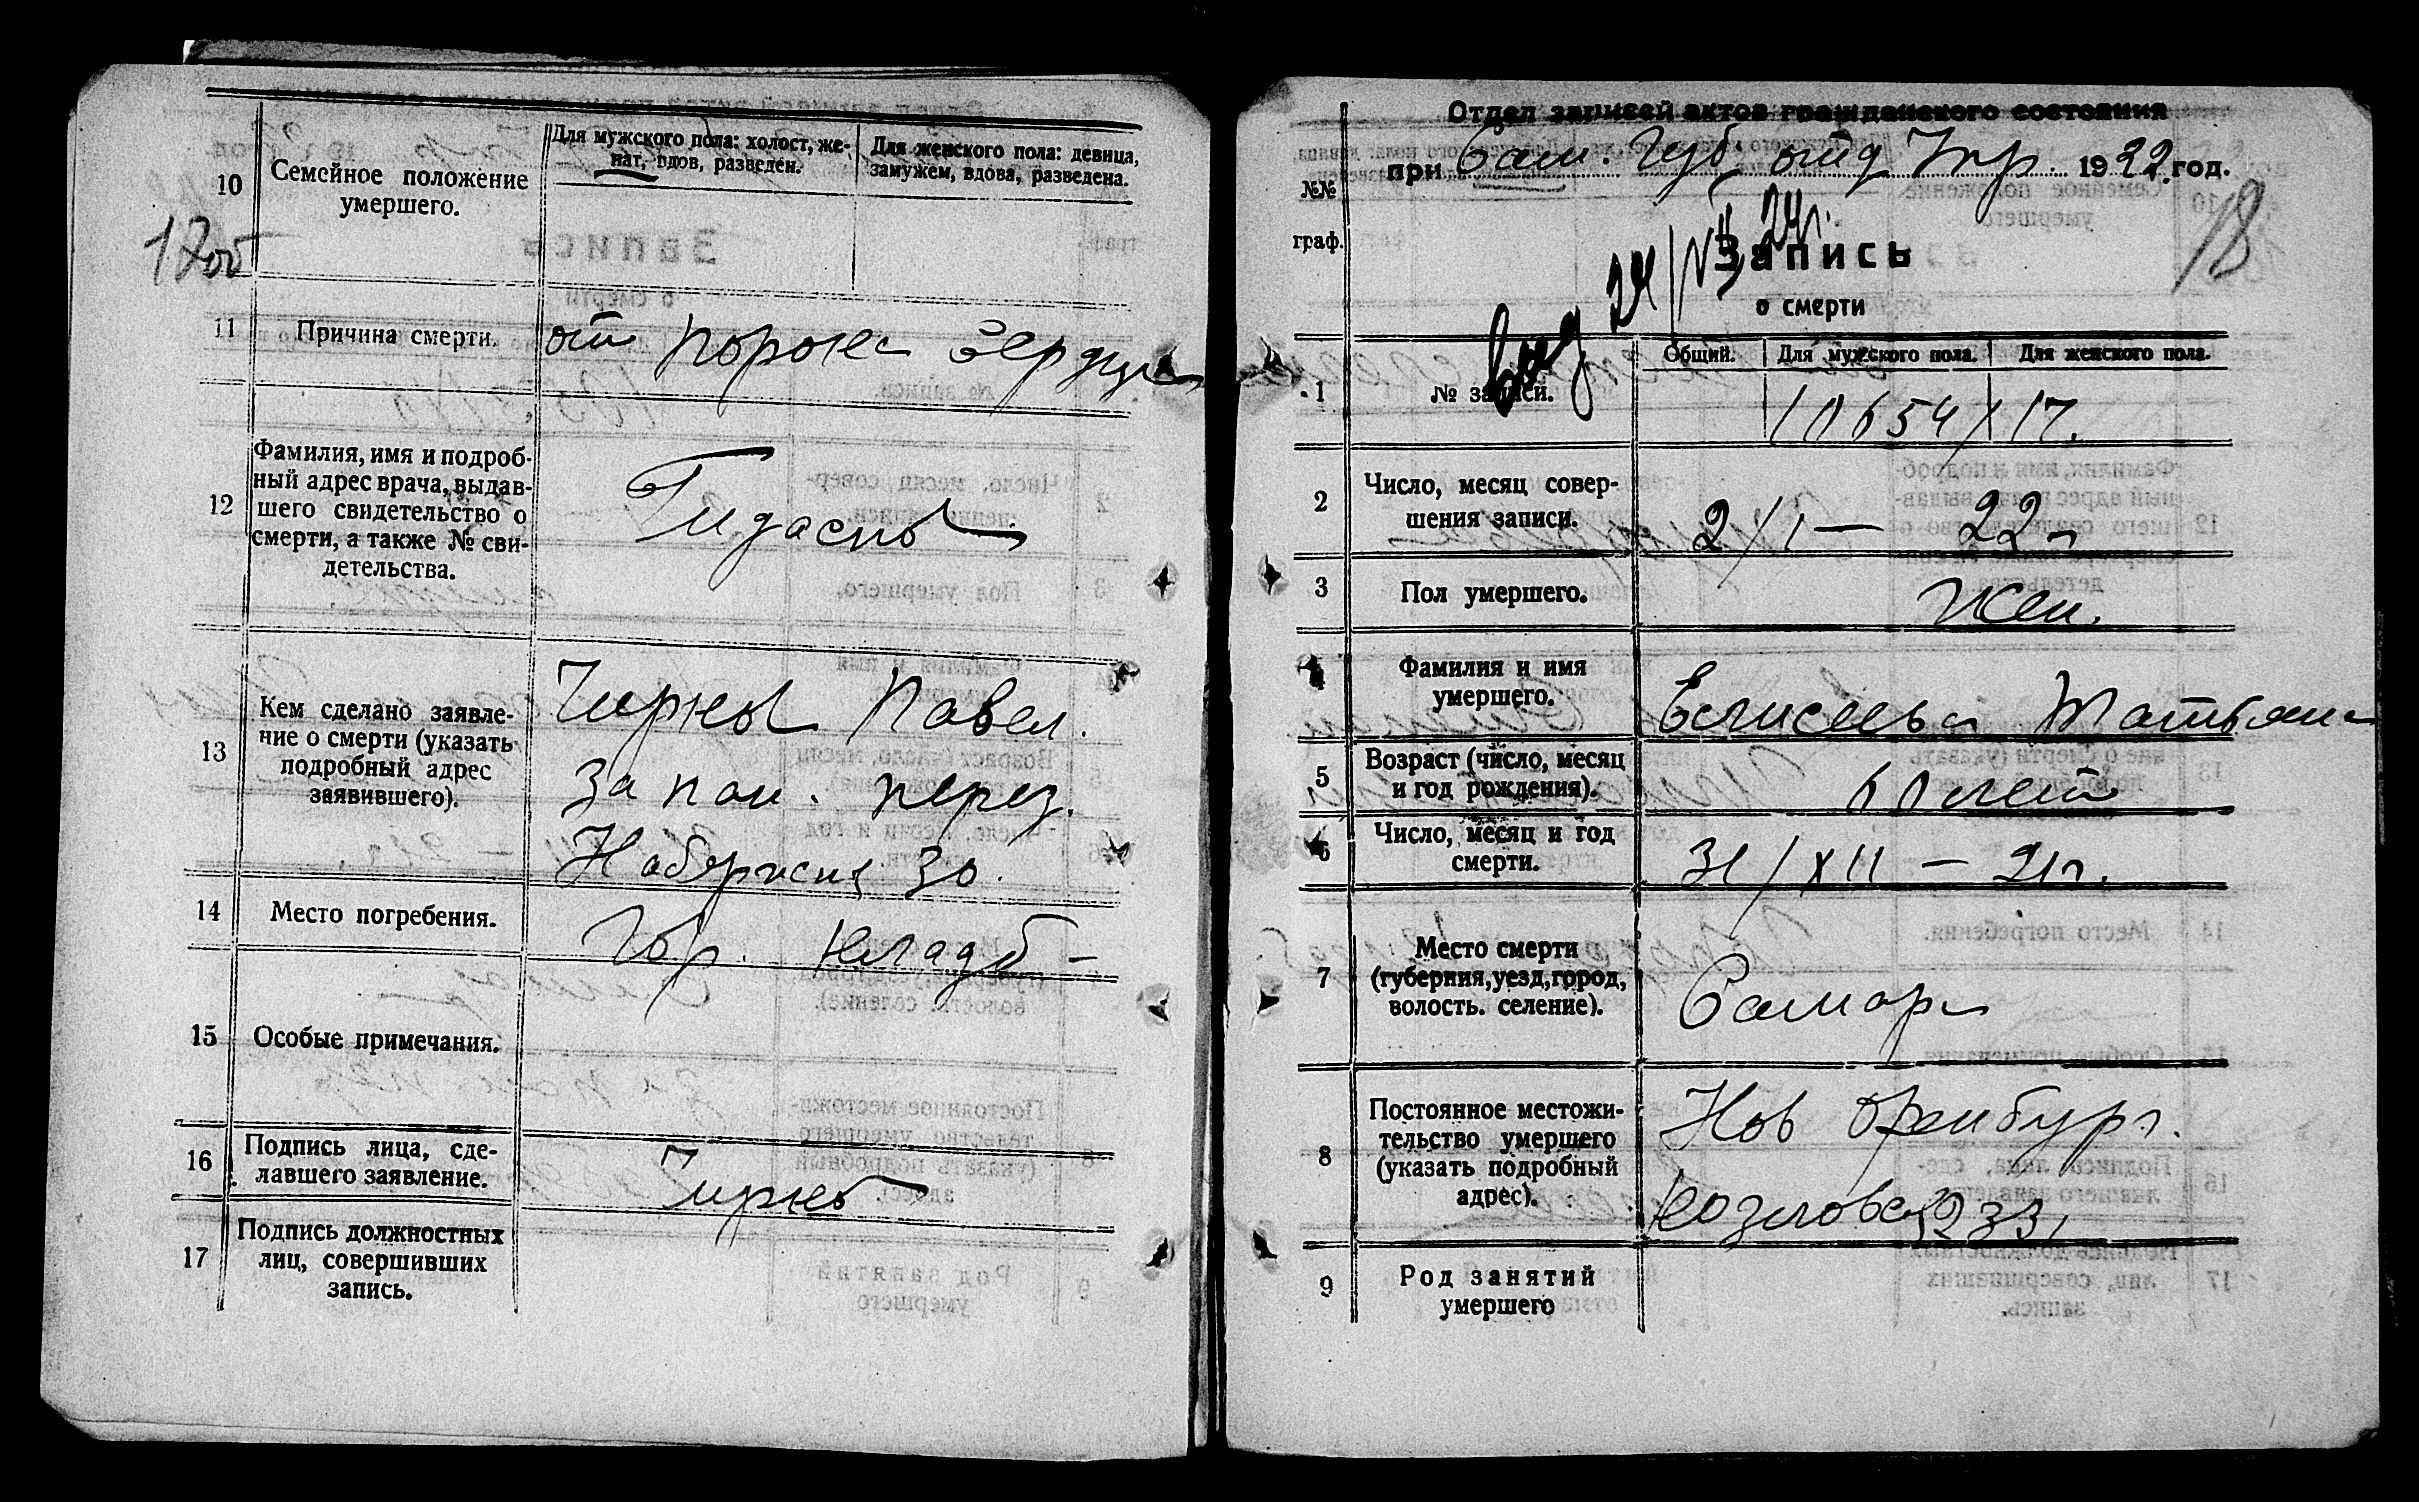 10
Семейное положение
умершего.
Для мужского пола: холост, же-
нат, вдов, разведен.
Для женского пола: девица,
замужем, вдова, разведена.
11
Причина смерти.
от порока сердца
12
Фамилия, имя и подроб-
ный адрес врача, выдав-
шего свидетельство о
смерти, а также № сви-
детельства.
Гидаспов
13
Кем сделано заявле-
ние о смерти (указать
подробный адрес
заявившего).
Чирков Павел.
За пан.
30.
14
Место погребения.
Гор. кладб –
15
Особые примечания.
16
Подпись лица, сде-
лавшего заявление.
Чирков
17
Подпись должностных
лиц, совершивших
запись.
Отдел записей актов гражданского состояния
при Сам. Губ. отд Упр. 1922 год.
18
№№
граф.
Запись
о смерти
1
№ записей.
Общий.
Для мужского пола.
Для женского пола.
10654/17.
2
Число, месяц совер-
шения записи.
2/I — 22 г
3
Пол умершего.
Жен.
4
Фамилия и имя
умершего.
Елисеева Татьяна
5
Возраст (число, месяц
и год рождения).
60 лет
6
Число, месяц и год
смерти.
31/XII — 21 г.
7
Место смерти
(губерния, уезд, город,
волость. селение).
Самара
8
Постоянное местожи-
тельство умершего
(указать подробный
адрес).
Нов Оренбург.
33,
9
Род занятий
умершего